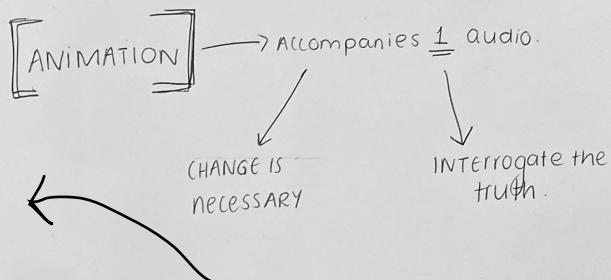 [ANIMATION] → Accompanies 1 audio.
CHANGE IS
necessary
INTerrogate the
truth.